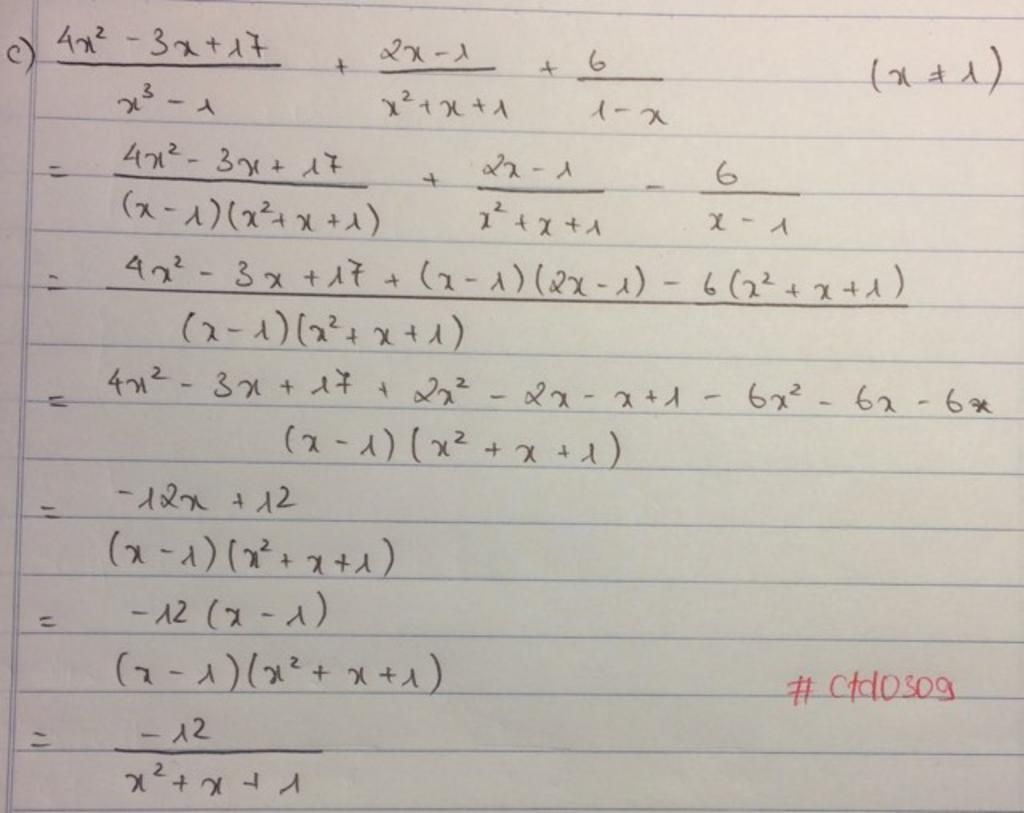 c) (4x² - 3x + 17)/(x³ - 1) + (2x - 1)/(x² + x + 1) + 6/(1 - x) (x ≠ 1)
= (4x² - 3x + 17)/((x - 1)(x² + x + 1)) + (2x - 1)/(x² + x + 1) - 6/(x - 1)
= (4x² - 3x + 17 + (x - 1)(2x - 1) - 6(x² + x + 1))/((x - 1)(x² + x + 1))
= (4x² - 3x + 17 + 2x² - 2x - x + 1 - 6x² - 6x - 6x)/((x - 1)(x² + x + 1))
= (-12x + 12)/((x - 1)(x² + x + 1))
= (-12(x - 1))/((x - 1)(x² + x + 1))
# Ctd0309
= (-12)/(x² + x + 1)